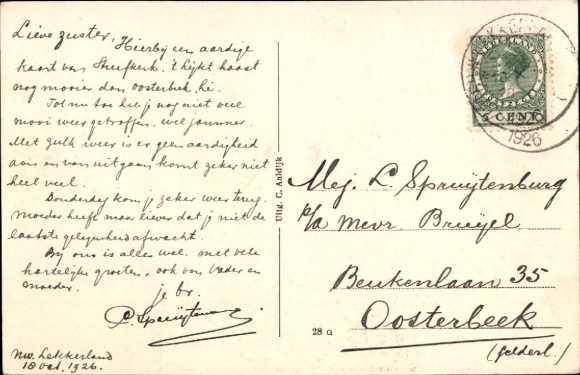 Lieve zuster,
Hierbij een aardige
kaart van Streefkerk. 't lijkt haast
nog mooier dan Oosterbeek, hè.
Tot nu toe heb je nog niet veel
mooi weer getroffen. Wel jammer.
Met zulk weer is er geen aardigheid
aan en van uitgaan komt zeker niet
heel veel.
Donderdag kom je zeker weer terug.
Moeder heeft maar liever dat je niet de
laatste gelegenheid afwacht.
Bij ons is alles wel. Met vele
hartelijke groeten, ook van Vader en
Moeder.
je br.
C. Spruijtenburg
Nw. Lekkerland
18 Oct. 1926.
Uitg. C. Aaldijk
28 a
NEDERLAND
5 CENT
1926
Mej. L. Spruijtenburg
p/a Mevr. Bruijel
Beukenlaan 35
Oosterbeek
(Gelderl.)